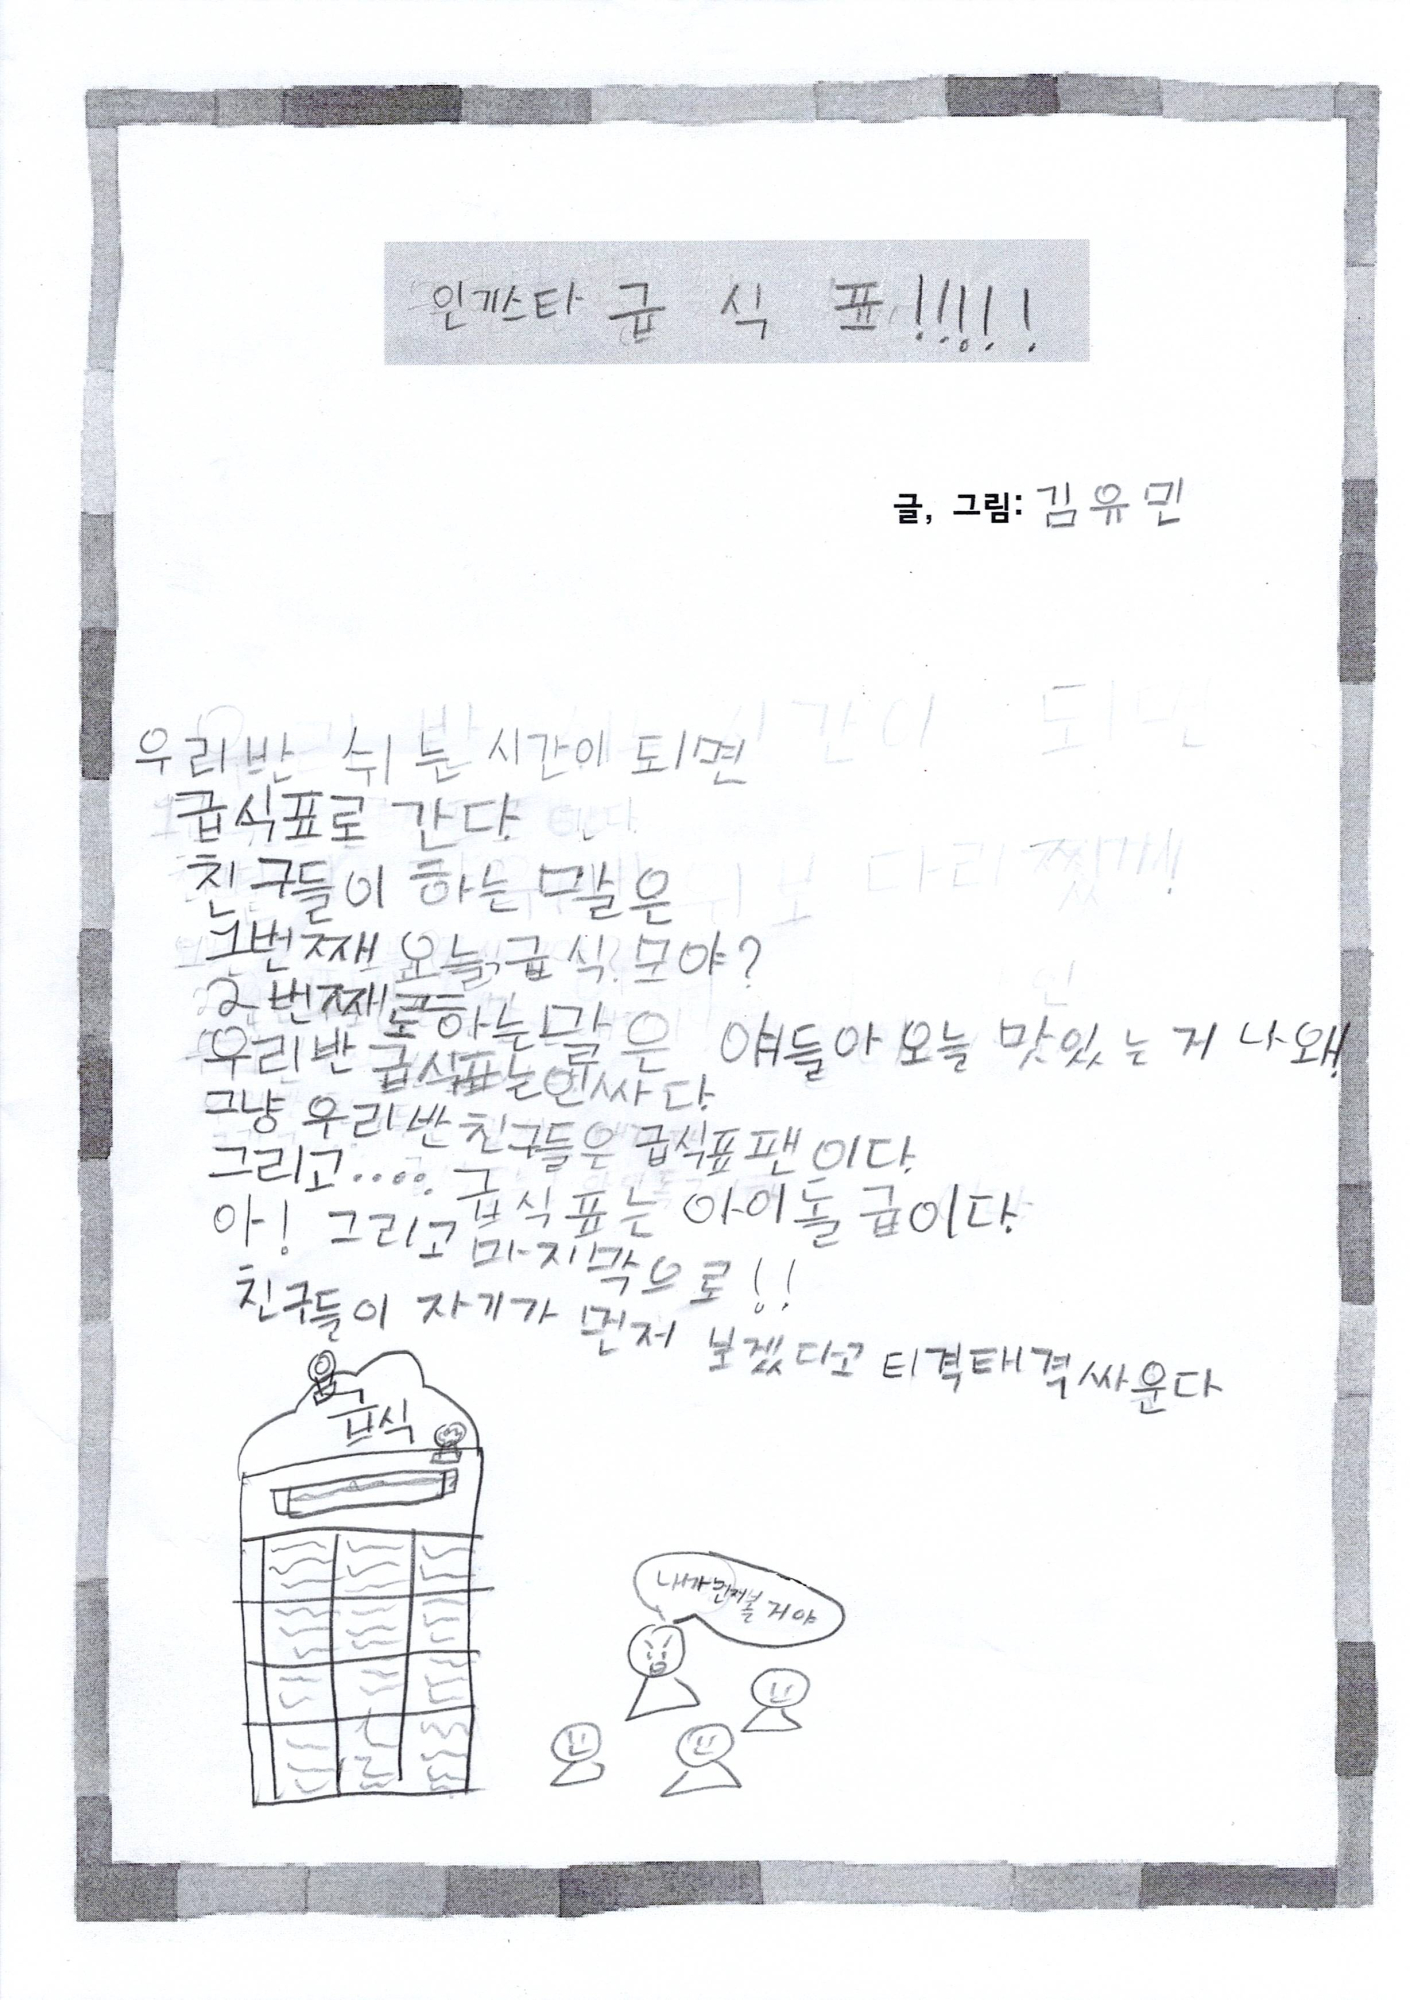 인기스타 급 식 표!!!!!
글, 그림: 김유민
우리반 쉬는 시간이 되면
급식표로 간다
친구들이 하는 말은
1번째 오늘 급식 모야?
2번째로 하는 말은 얘들아 오늘 맛있는 거 나왜!
우리반 급식표는 인싸다
그냥 우리반 친구들은 급식표팬이다
그리고.... 급식표는 아이돌 급이다
아! 그리고 마지막으로!!
친구들이 자기가 먼저 보겠다고 티격태격싸운다
급식
내가먼저볼거야